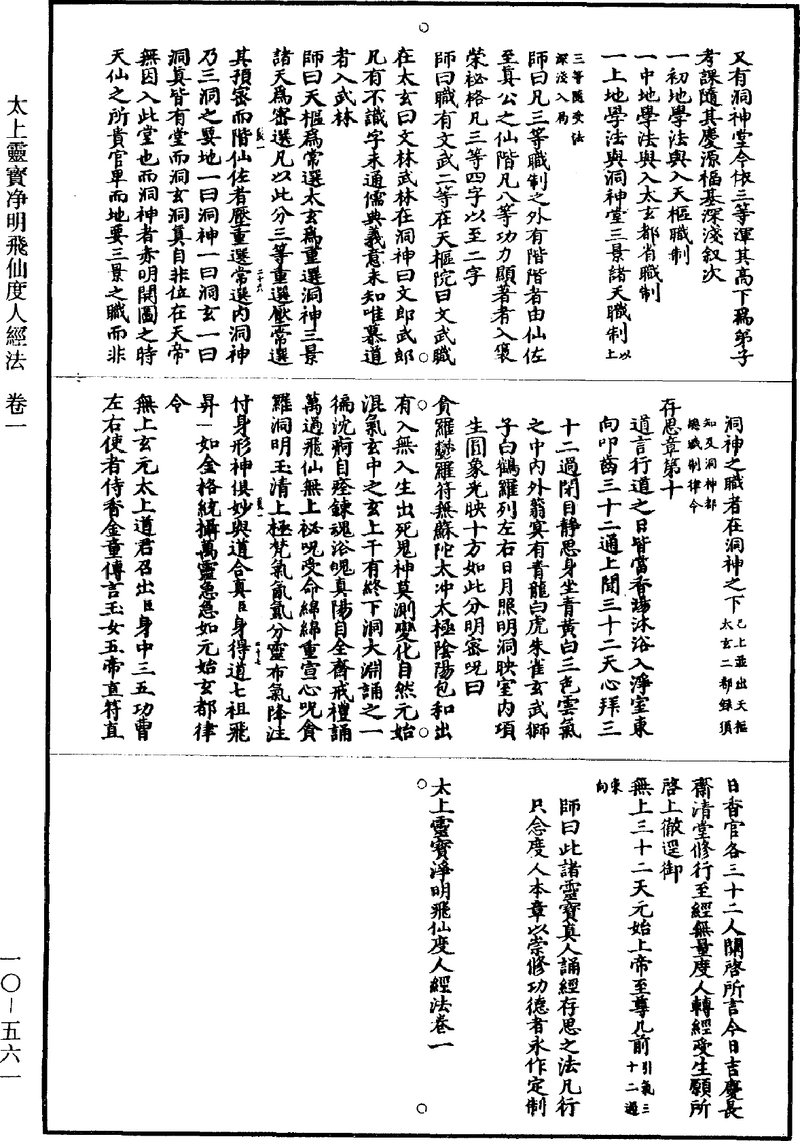 太上靈寶净明飛仙度人經法　卷一
一〇－五六一
又有洞神堂令依三等渾其高下爲弟子
考課隨其慶源福基深淺叙次
一初地學法與入天樞職制
一中地學法與入太玄都省職制
一上地學法與洞神堂三景諸天職制以上
三等隨受法
深淺入爲
師曰凡三等職制之外有階階者由仙佐
至真公之仙階凡八等功力顯著者入褒
榮祕格凡三等四字以至二字
師曰職有文武二等在天樞院曰文武職
在太玄曰文林武林在洞神曰文郎武郎
凡有不識字未通儒典義意未知唯慕道
者入武林
師曰天樞爲常選太玄爲重選洞神三景
諸天爲審選凡以此分三等重選壓常選
其預審而階仙佐者壓重選常選内洞神
乃三洞之要地一曰洞神一曰洞玄一曰
洞真皆有堂而洞玄洞真自非位在天帝
無因入此堂也而洞神者赤明開圖之時
天仙之所貴官卑而地要三景之職而非
洞神之職者在洞神之下已上並出天樞
太玄二都録須
知及洞神部
總職制律令
存思章第十
道言行道之日皆當香湯沐浴入淨室東
向叩齒三十二通上聞三十二天心拜三
十二過閉目静思身坐青黄白三色雲氣
之中内外蓊冥有青龍白虎朱雀玄武獅
子白鶴羅列左右日月照明洞映室内項
生圓象光映十方如此分明密呪曰
貪羅鬱羅符無蘇陀太冲太極陰陽包和出
有入無入生出死鬼神莫測變化自然元始
混氣玄中之玄上干有終下洞大淵誦之一
徧沈痾自痊鍊魂浴魄真陽自全齋戒禮誦
萬過飛仙無上祕呪受命綿綿重宣心呪貪
羅洞明玉清上極梵氣氤氳分靈布氣降注
付身形神俱妙與道合真臣身得道七祖飛
昇一如金格統攝萬靈急急如元始玄都律
令
無上玄元太上道君召出臣身中三五功曹
左右使者侍香金童傳言玉女五帝直符直
日香官各三十二人關啓所言今日吉慶長
齋清堂修行至經無量度人轉經受生願所
啓上徹逕御
無上三十二天元始上帝至尊几前引氣三
十二過
東
向
師曰此諸靈寶真人誦經存思之法凡行
只念度人本章以崇修功德者永作定制
太上靈寶淨明飛仙度人經法卷一